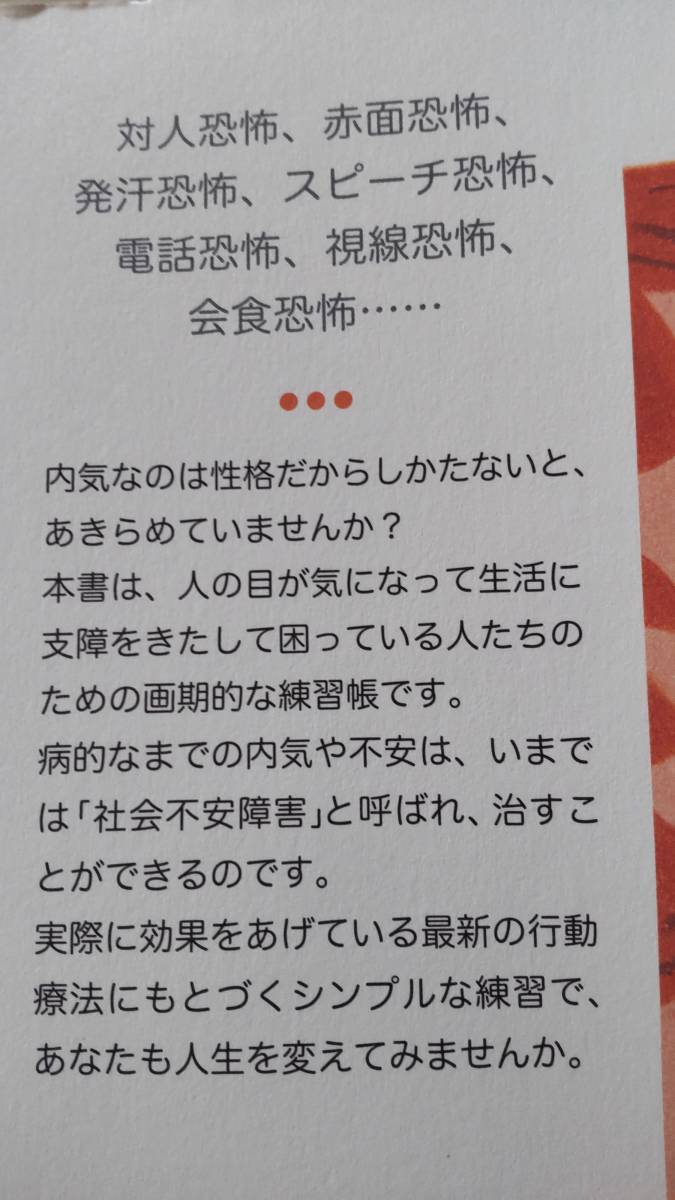 対人恐怖、赤面恐怖、
発汗恐怖、スピーチ恐怖、
電話恐怖、視線恐怖、
会食恐怖……
●●●
内気なのは性格だからしかたないと、
あきらめていませんか？
本書は、人の目が気になって生活に
支障をきたして困っている人たちの
ための画期的な練習帳です。
病的なまでの内気や不安は、いまで
は「社会不安障害」と呼ばれ、治すこ
とができるのです。
実際に効果をあげている最新の行動
療法にもとづくシンプルな練習で、
あなたも人生を変えてみませんか。